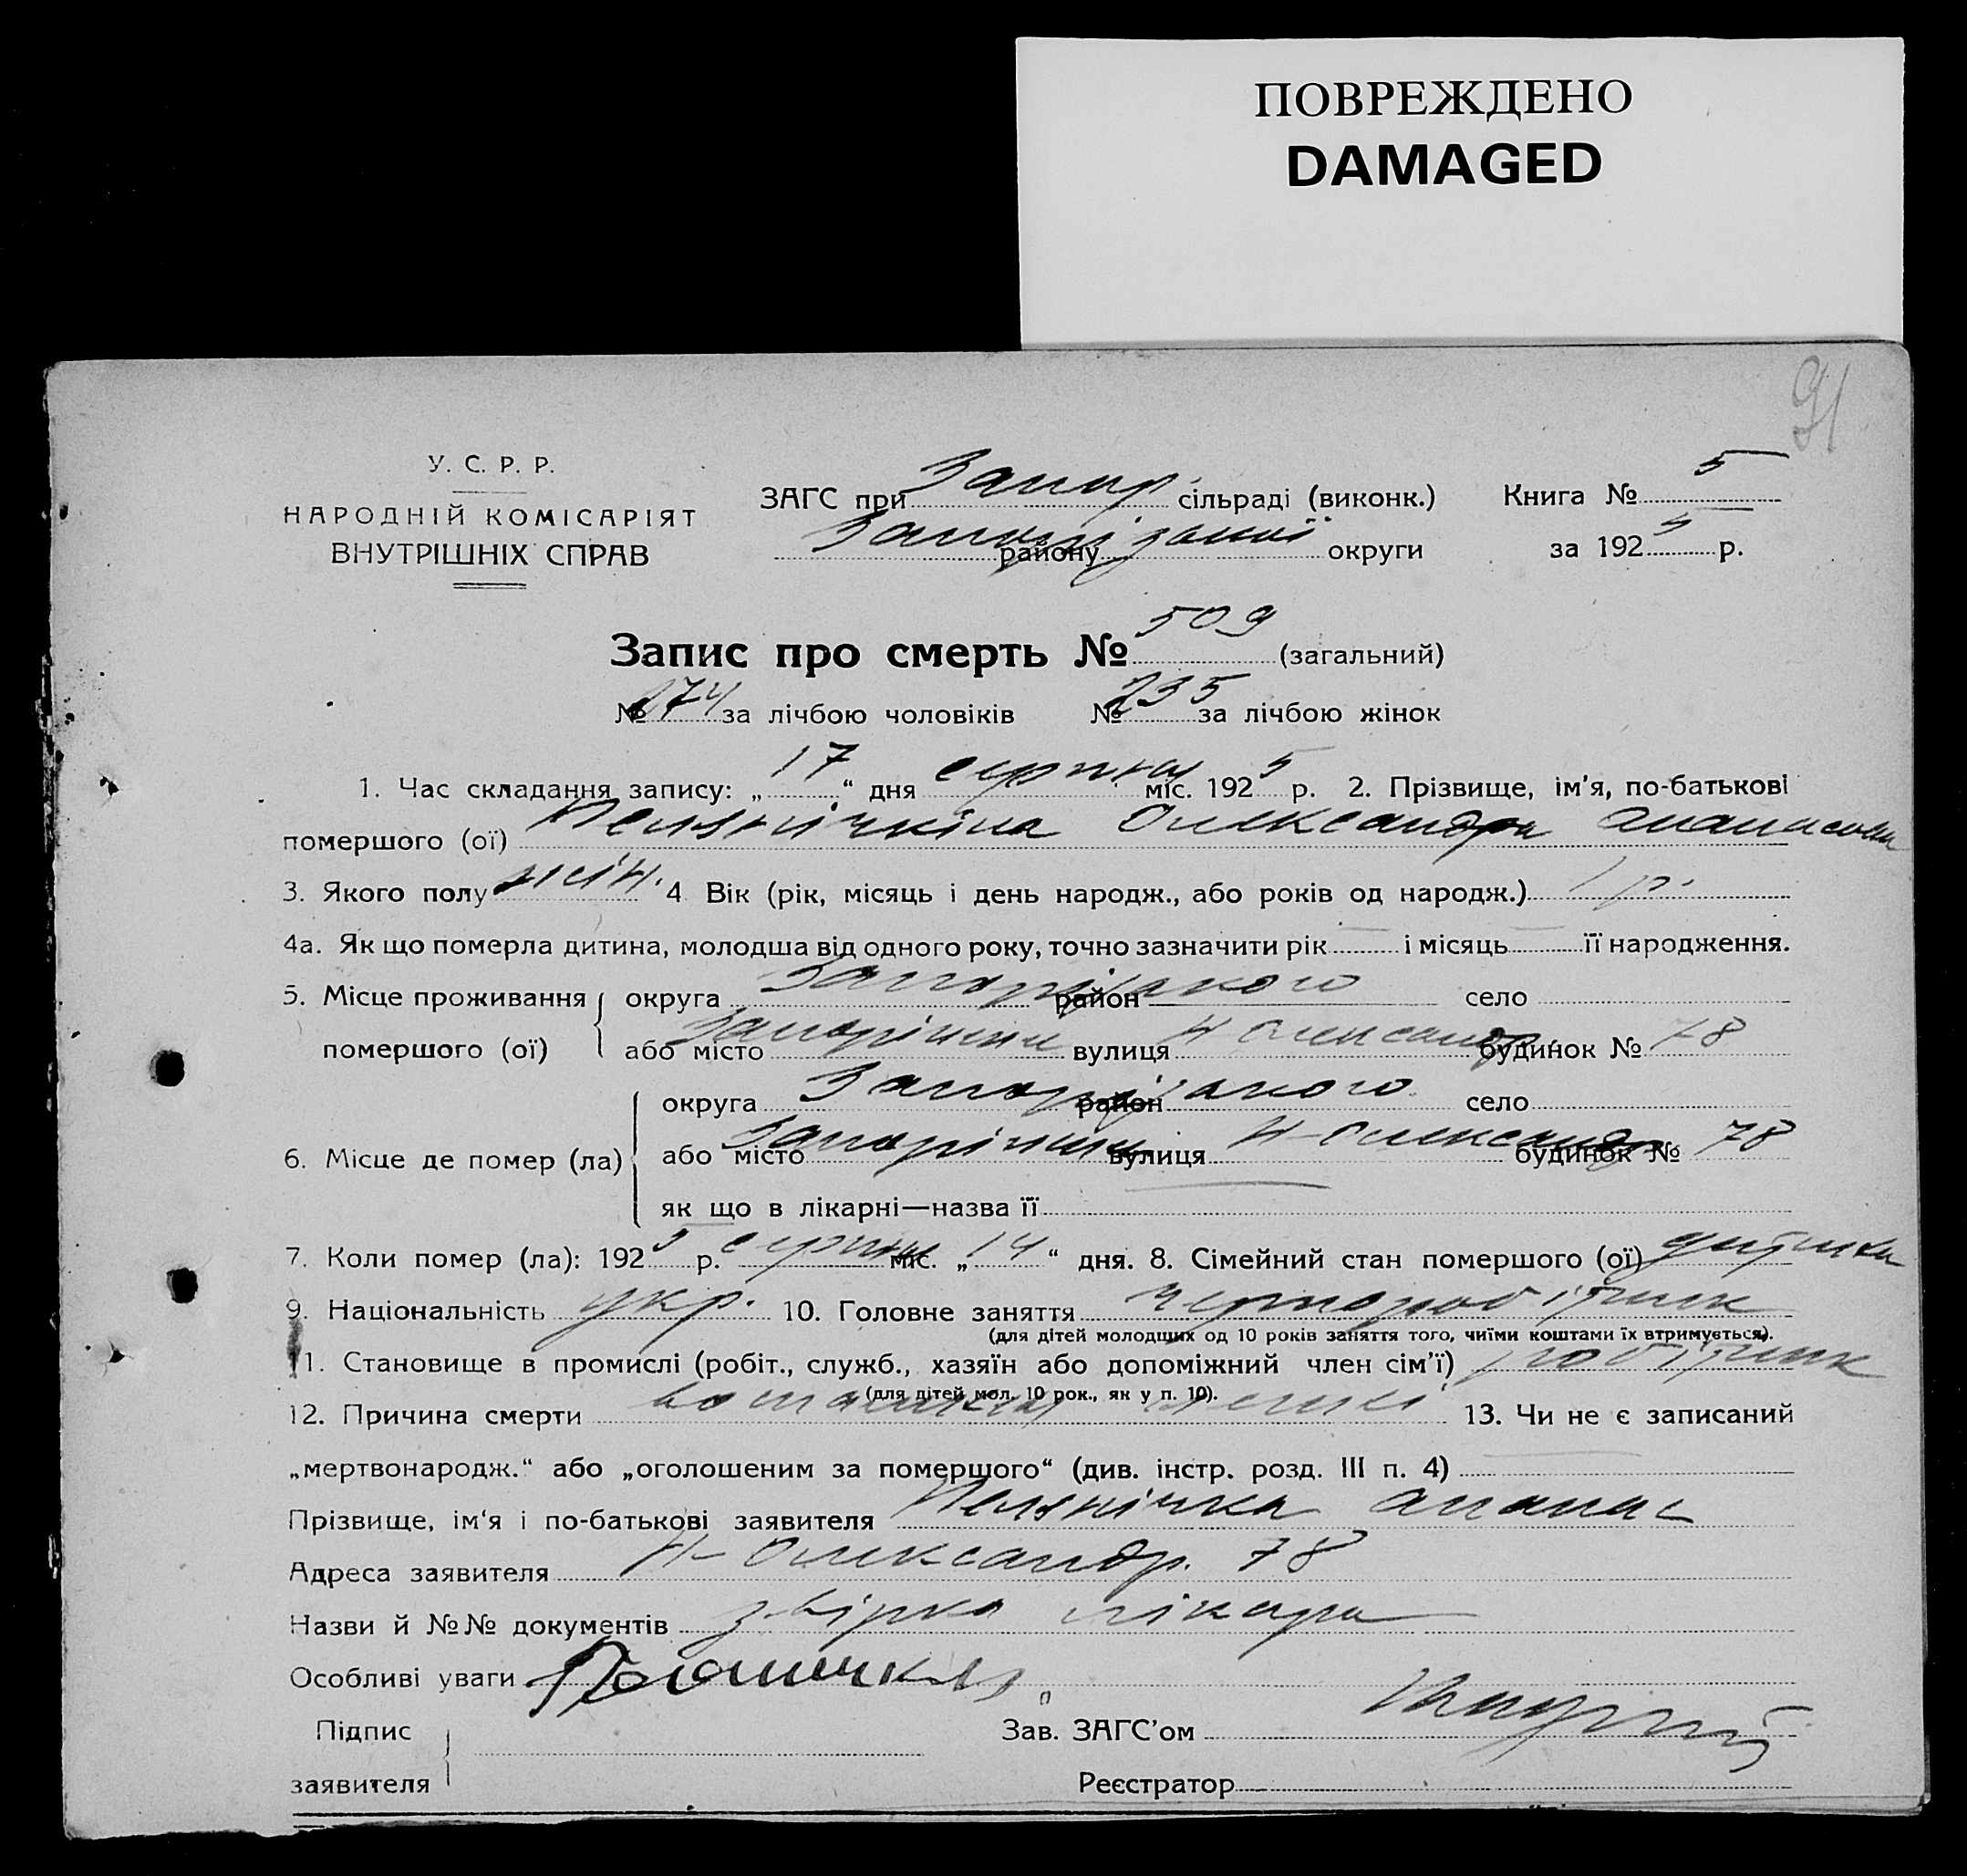 ПОВРЕЖДЕНО
DAMAGED
91
У. С. Р. Р.
НАРОДНІЙ КОМІСАРІЯТ
ВНУТРІШНІХ СПРАВ
ЗАГС при Запор. сільраді (виконк.) Книга № 5
району Запорізької округи за 1925 р.
Запис про смерть № 509 (загальний)
№ 274 за лічбою чоловіків № 235 за лічбою жінок
1. Час складання запису: „17“ дня серпня міс. 1925 р. 2. Прізвище, ім'я, по-батькові
помершого (ої) Олександра
3. Якого полу жін. 4 Вік (рік, місяць і день народж., або років од народж.) 1 р.
4а. Як що померла дитина, молодша від одного року, точно зазначити рік — і місяць — її народження.
5. Місце проживання округа Запорізького район село
помершого (ої) або місто Запоріжжя вулиця Н Олександр. будинок № 78
округа Запорізького район село
6. Місце де помер (ла) або місто Запоріжжя вулиця Н-Олександр будинок № 78
як що в лікарні—назва її
7. Коли помер (ла): 1925 р. серпня міс. „14“ дня. 8. Сімейний стан помершого (ої) дитина
9. Національність укр. 10. Головне заняття чорноробітник
(для дітей молодших од 10 років заняття того, чиїми коштами їх втримується).
11. Становище в промислі (робіт., служб., хазяїн або допоміжний член сім'ї) робітник
(для дітей мол. 10 рок., як у п. 10).
12. Причина смерти 13. Чи не є записаний
„мертвонародж.“ або „оголошеним за помершого“ (див. інстр. розд. III п. 4)
Прізвище, ім'я і по-батькові заявителя Апанас
Адреса заявителя Н-Олександр. 78
Назви й №№ документів лікаря
Особливі уваги
Підпис Зав. ЗАГС'ом
заявителя Реєстратор